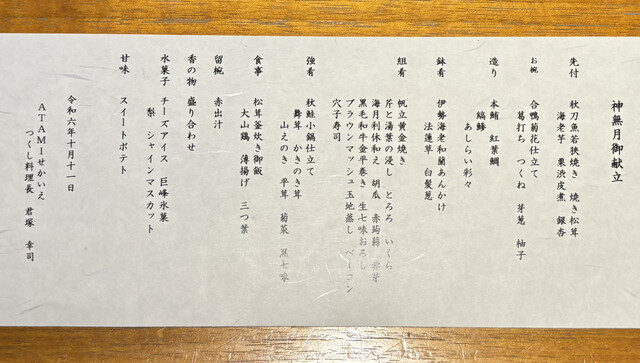 神無月御献立
先付　秋刀魚若狭焼き　焼き松茸
海老芋　栗渋皮煮　銀杏
お椀　合鴨菊花仕立て
葛打ち　つくね　芽葱　柚子
造り　本鮪　紅葉鯛
縞鰺
あしらい彩々
鉢肴　伊勢海老和蘭あんかけ
法蓮草　白髪葱
組肴　帆立黄金焼き
芹と湯葉の浸し　とろろ　いくら
海月利休和え　胡瓜　赤蒟蒻　赤芽
黒毛和牛金平巻き　生七味おろし
ブラウンマッシュ玉地蒸し　ベーコン
穴子寿司
強肴　秋鮭小鍋仕立て
舞茸　かきのき茸
山えのき　平茸　菊菜　黒七味
食事　松茸釜炊き御飯
大山鶏　薄揚げ　三つ葉
留椀　赤出汁
香の物　盛り合わせ
水菓子　チーズアイス　巨峰氷菓
梨　シャインマスカット
甘味　スイートポテト
令和六年十月十一日
ＡＴＡＭＩせかいえ
つくし料理長　君塚　幸司